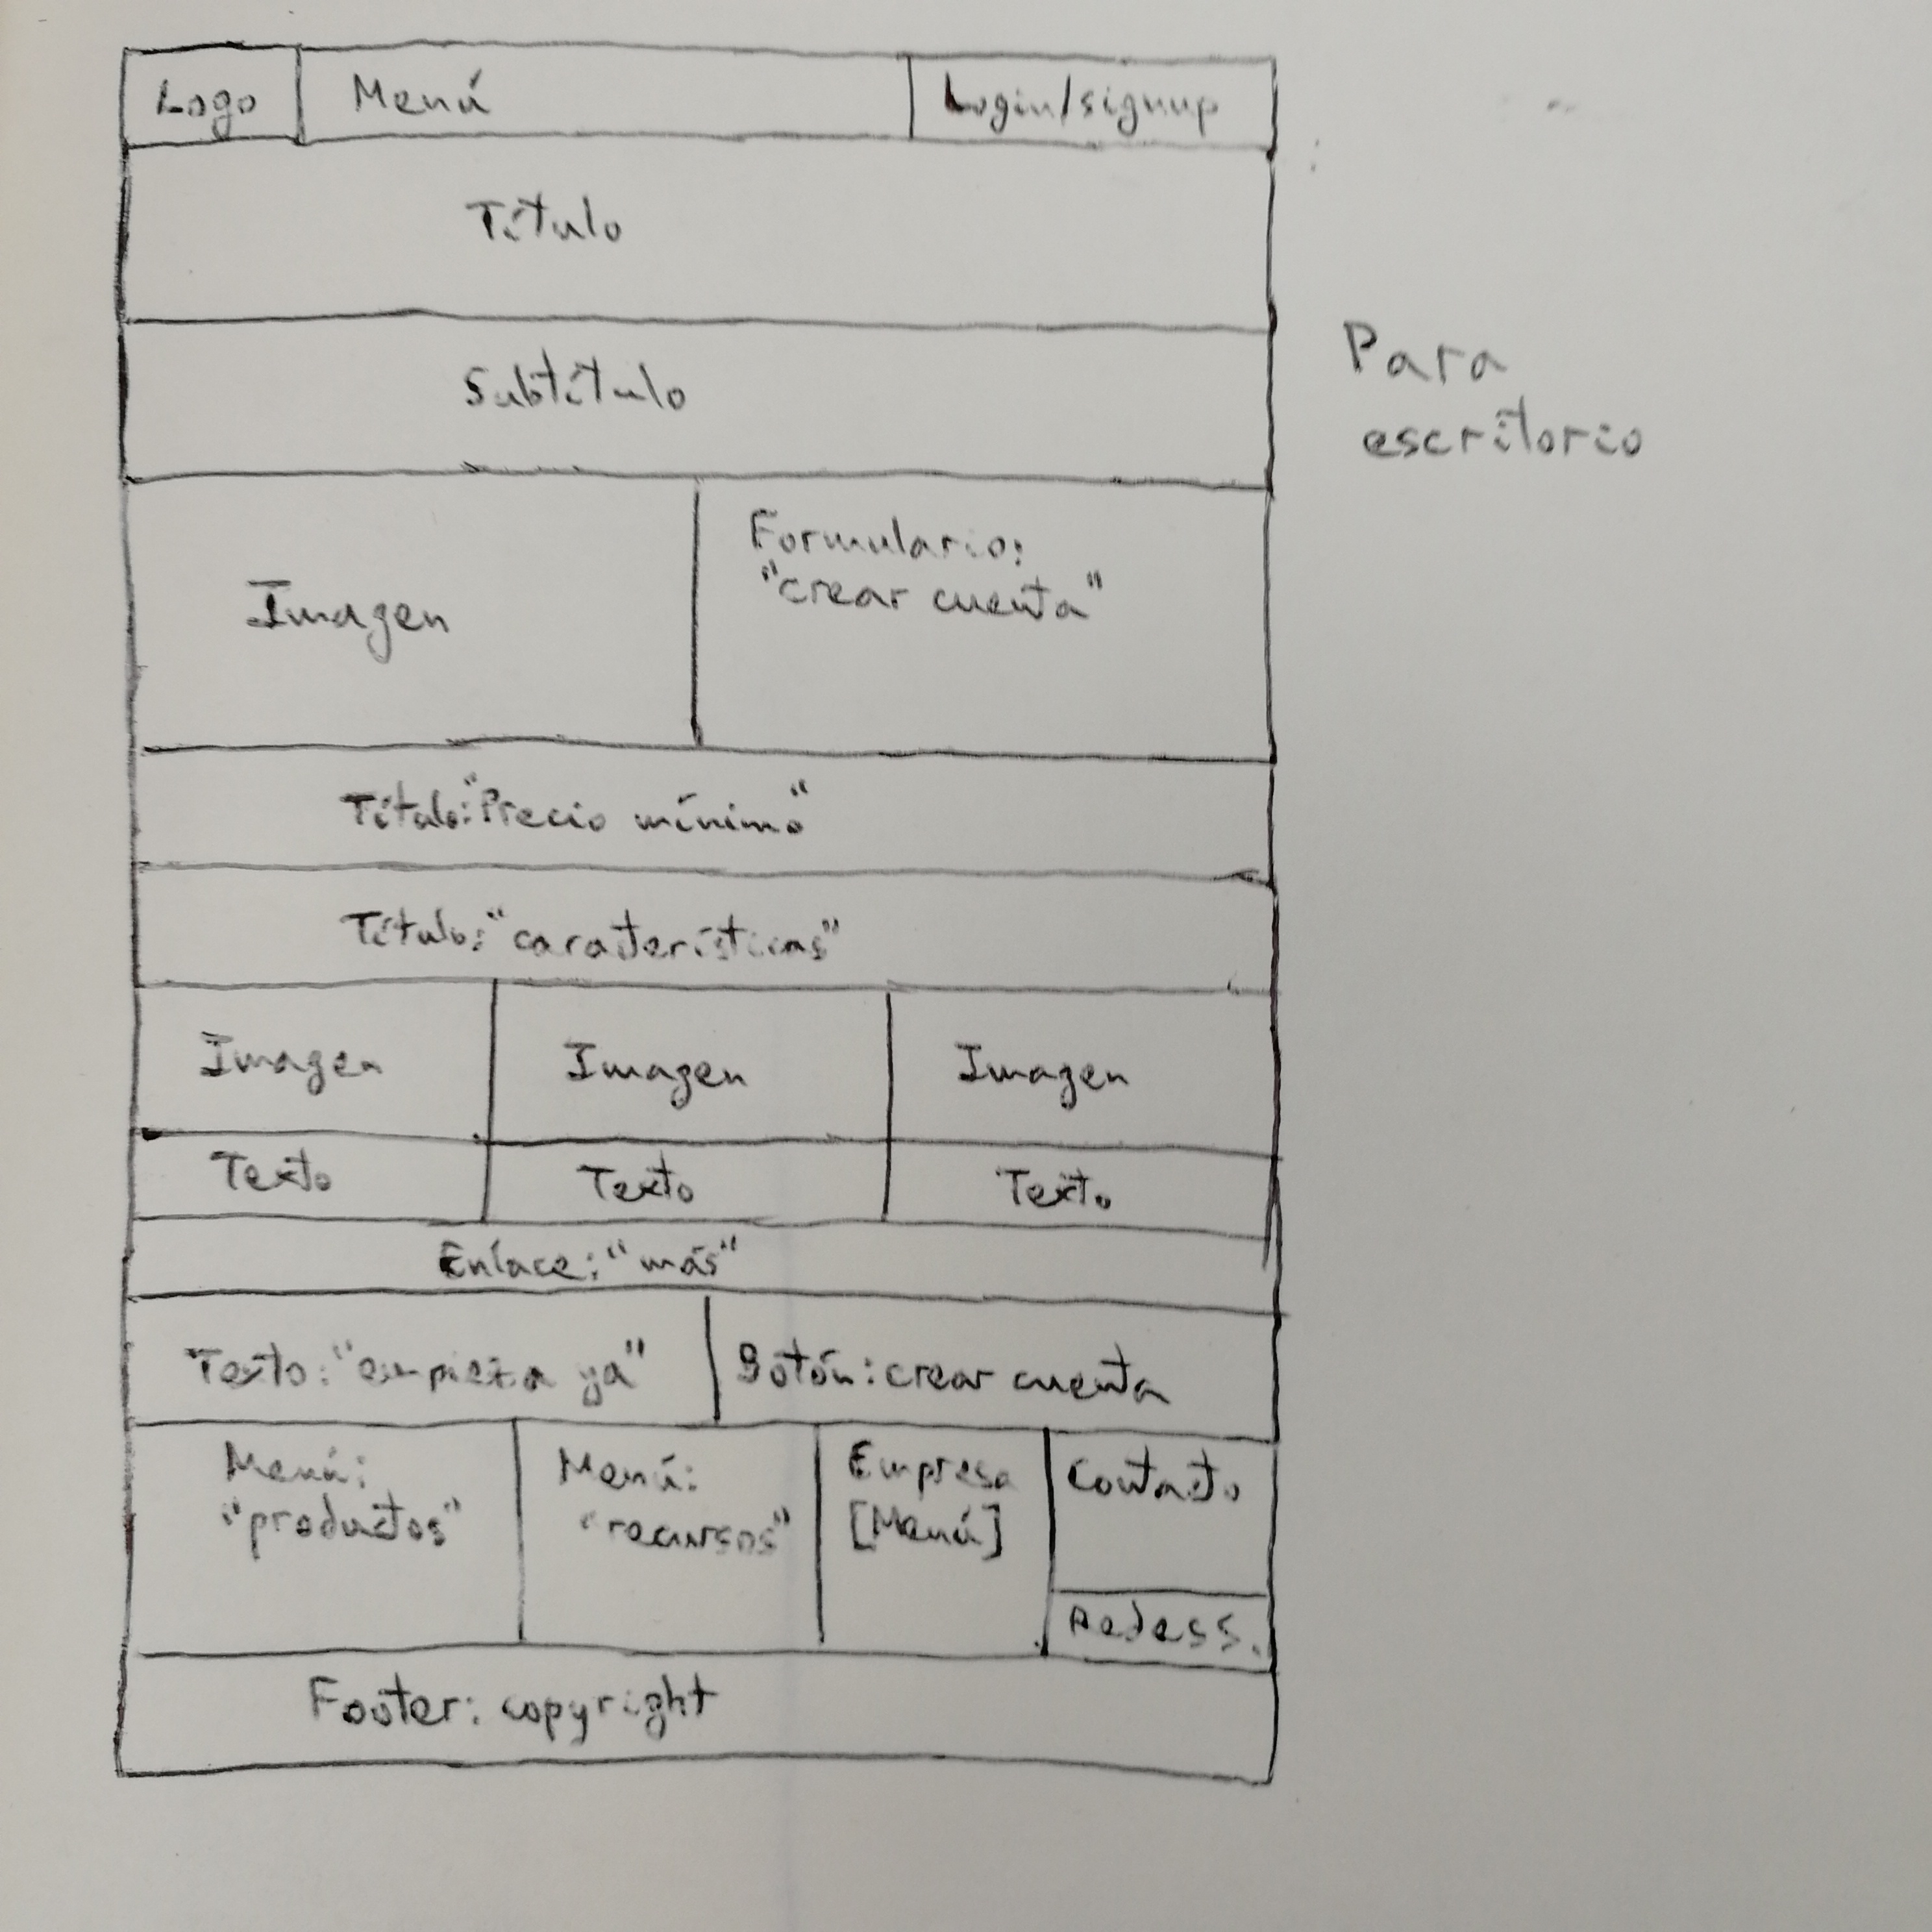 Logo Menú Login/signup
Título
Subtítulo
Para
escritorio
Imagen
Formulario:
"crear cuenta"
Título: "Precio mínimo"
Título: "caraterísticas"
Imagen Imagen Imagen
Texto Texto Texto
Enlace: "más"
Texto: "empieza ya" Botón: crear cuenta
Menú:
"productos"
Menú:
"recursos"
Empresa
[Menú]
Contacto
Redes s.
Footer: copyright